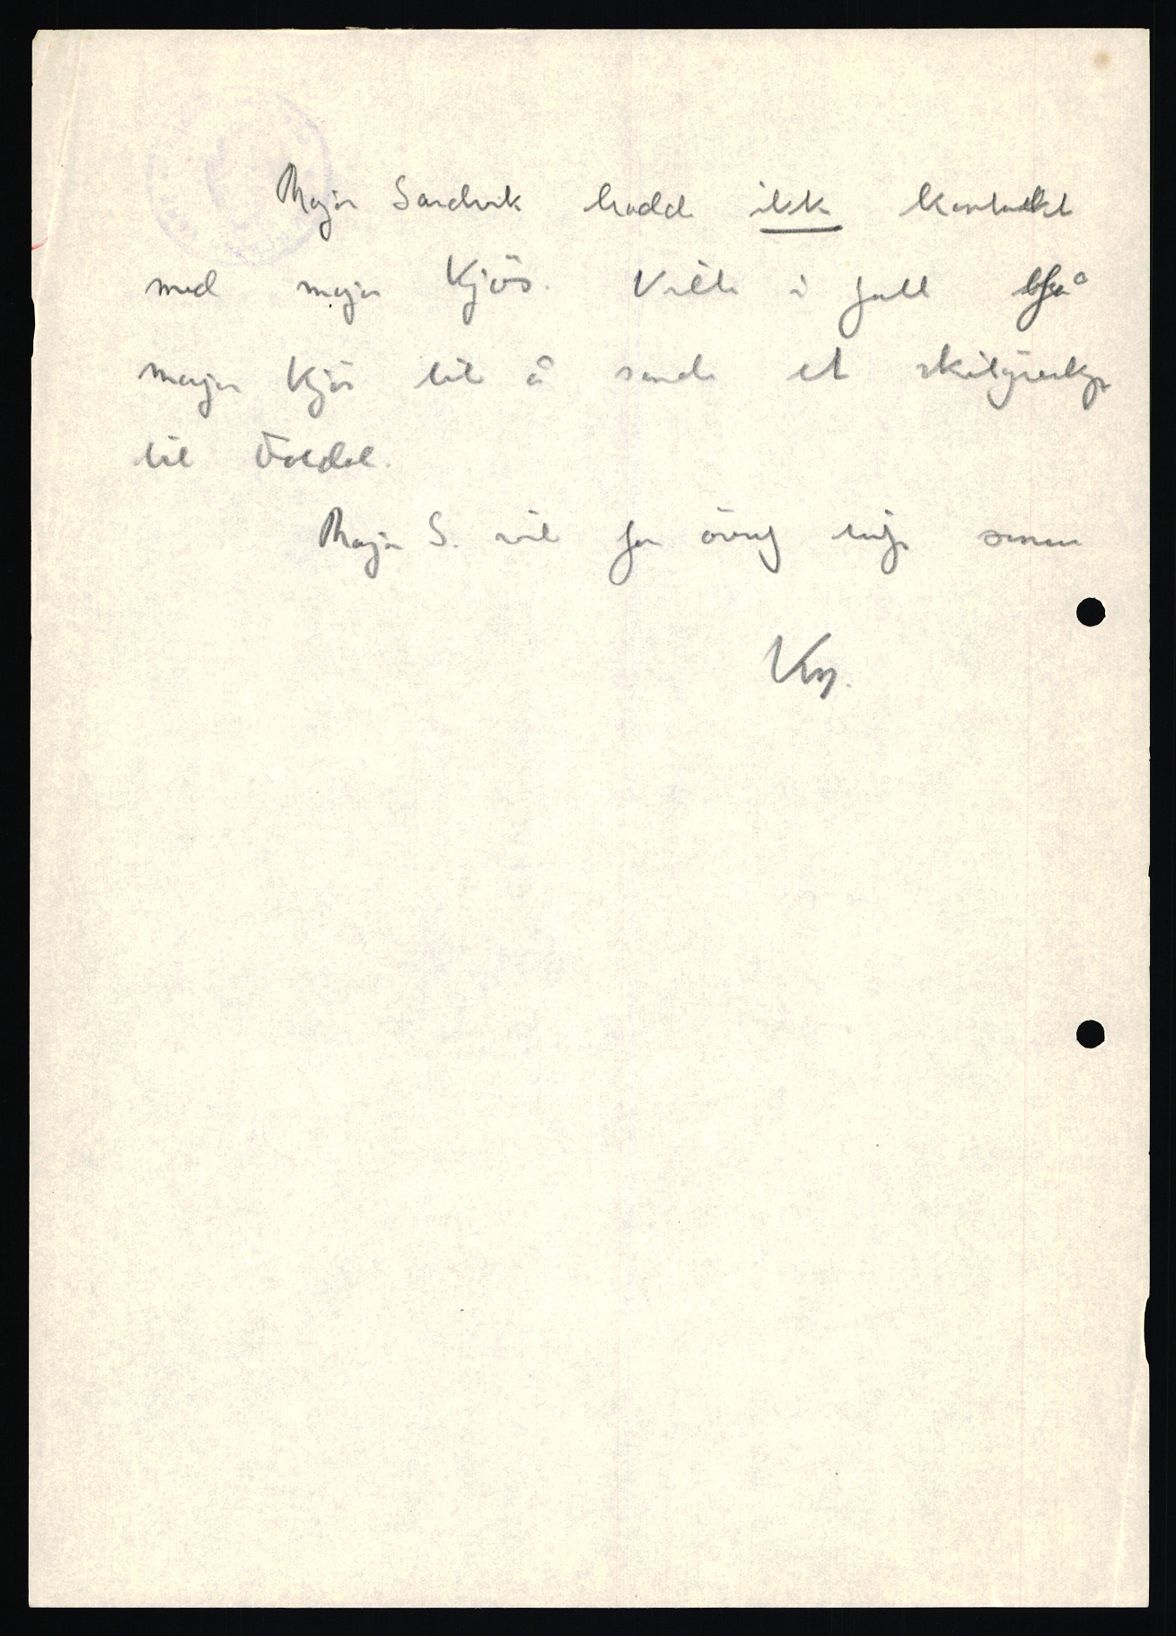 Major Sandvik hadde ikke kontakt
med major Kjös. Ville i fall få
major Kjös til å sende et skitjenlag
til Valldal.
Major S. vil for övrig
Kg.